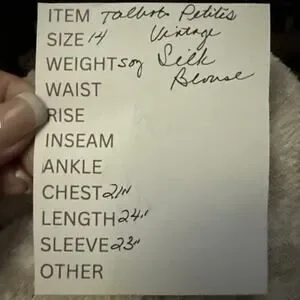 ITEM Talbots Petites
SIZE 14 Vintage
WEIGHT 5oz Silk
WAIST Blouse
RISE
INSEAM
ANKLE
CHEST 21"
LENGTH 24"
SLEEVE 23"
OTHER